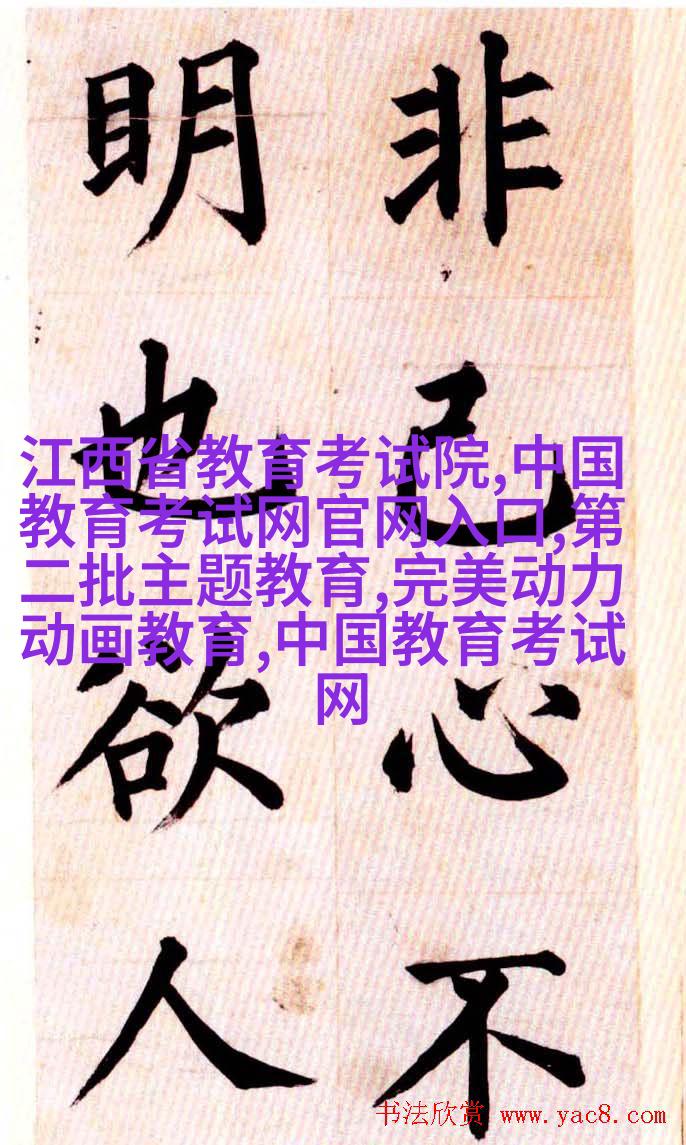 非己心不
明也欲人
江西省教育考试院,中国
教育考试网官网入口,第
二批主题教育,完美动力
动画教育,中国教育考试
网
书法欣赏 www.yac8.com